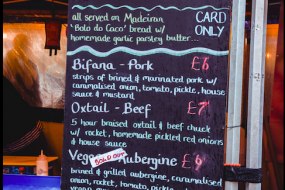 all served on Madeiran
'Bolo do Caco' bread w/
homemade garlic parsley butter...
CARD
ONLY
Bifana - Pork £6
strips of brined & marinated pork w/
caramalised onion, tomato, pickle, house
sauce & mustard
Oxtail - Beef £7
5 hour braised oxtail & beef chuck
w/ rocket, homemade pickled red onions
& house sauce
Vege Aubergine £6
SOLD OUT
brined & grilled aubergine, caramalised
onion, rocket, tomato, pickle